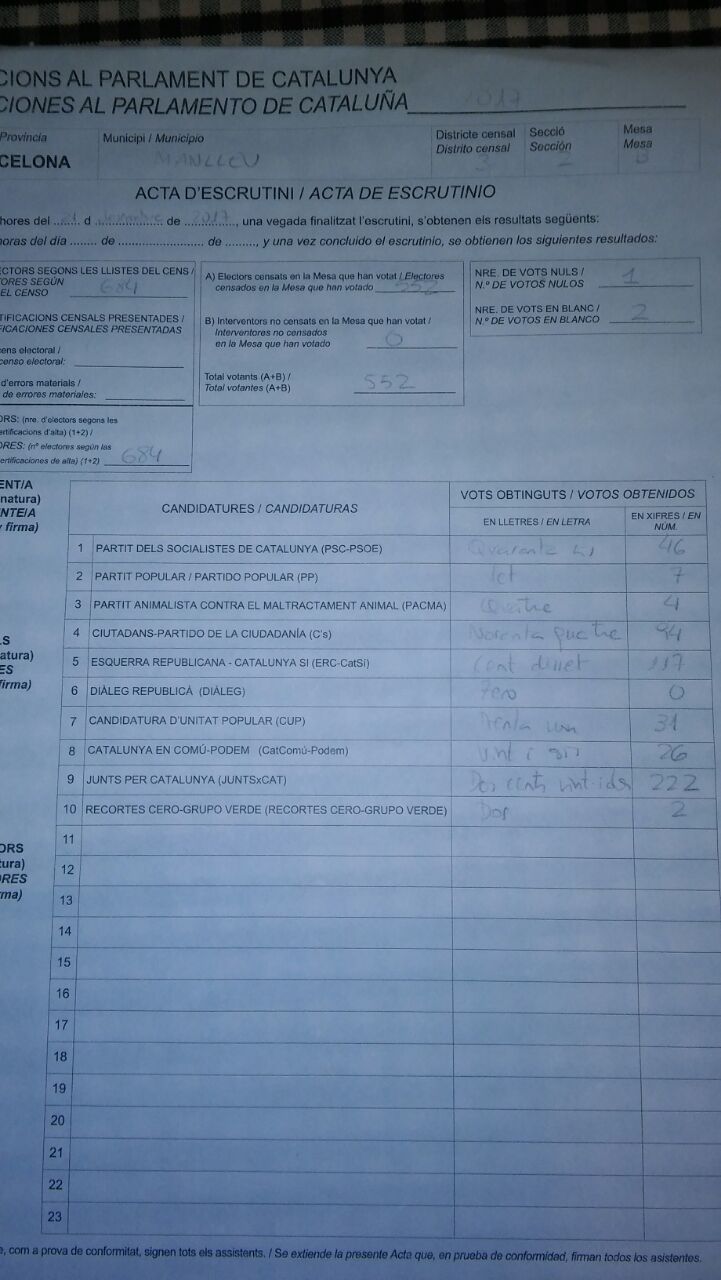 CIONS AL PARLAMENT DE CATALUNYA
CIONES AL PARLAMENTO DE CATALUÑA 2017
Provincia Municipi / Municipio Districte censal Secció Mesa
Distrito censal Sección Mesa
CELONA MANLLEU 3 2 B
ACTA D'ESCRUTINI / ACTA DE ESCRUTINIO
hores del 21 d desembre de 2017, una vegada finalitzat l'escrutini, s'obtenen els resultats següents:
horas del día ........ de ........................ de ........., y una vez concluido el escrutinio, se obtienen los siguientes resultados:
ECTORS SEGONS LES LLISTES DEL CENS /
TORES SEGÚN
EL CENSO 684
TIFICACIONS CENSALS PRESENTADES /
FICACIONES CENSALES PRESENTADAS
cens electoral /
censo electoral:
d'errors materials /
de errores materiales:
ORS: (nre. d'electors segons les
ertificacions d'alta) (1+2) /
ORES: (nº electores según las
ertificaciones de alta) (1+2) 684
A) Electors censats en la Mesa que han votat / Electores
censados en la Mesa que han votado 552
B) Interventors no censats en la Mesa que han votat /
Interventores no censados
en la Mesa que han votado 0
Total votants (A+B) /
Total votantes (A+B) 552
NRE. DE VOTS NULS /
N.º DE VOTOS NULOS 1
NRE. DE VOTS EN BLANC /
N.º DE VOTOS EN BLANCO 2
ENT/A
natura)
NTE/A
y firma)
LS
atura)
ES
firma)
ORS
tura)
ORES
rma)
CANDIDATURES / CANDIDATURAS VOTS OBTINGUTS / VOTOS OBTENIDOS
EN LLETRES / EN LETRA EN XIFRES / EN NÚM.
1 PARTIT DELS SOCIALISTES DE CATALUNYA (PSC-PSOE) Quaranta sis 46
2 PARTIT POPULAR / PARTIDO POPULAR (PP) Set 7
3 PARTIT ANIMALISTA CONTRA EL MALTRACTAMENT ANIMAL (PACMA) Quatre 4
4 CIUTADANS-PARTIDO DE LA CIUDADANÍA (C's) Noranta quatre 94
5 ESQUERRA REPUBLICANA - CATALUNYA SI (ERC-CatSí) Cent disset 117
6 DIÀLEG REPUBLICÀ (DIÀLEG) Zero 0
7 CANDIDATURA D'UNITAT POPULAR (CUP) Trenta un 31
8 CATALUNYA EN COMÚ-PODEM (CatComú-Podem) Vint i sis 26
9 JUNTS PER CATALUNYA (JUNTSxCAT) Dos cents vint-i-dos 222
10 RECORTES CERO-GRUPO VERDE (RECORTES CERO-GRUPO VERDE) Dos 2
11
12
13
14
15
16
17
18
19
20
21
22
23
e, com a prova de conformitat, signen tots els assistents. / Se extiende la presente Acta que, en prueba de conformidad, firman todos los asistentes.